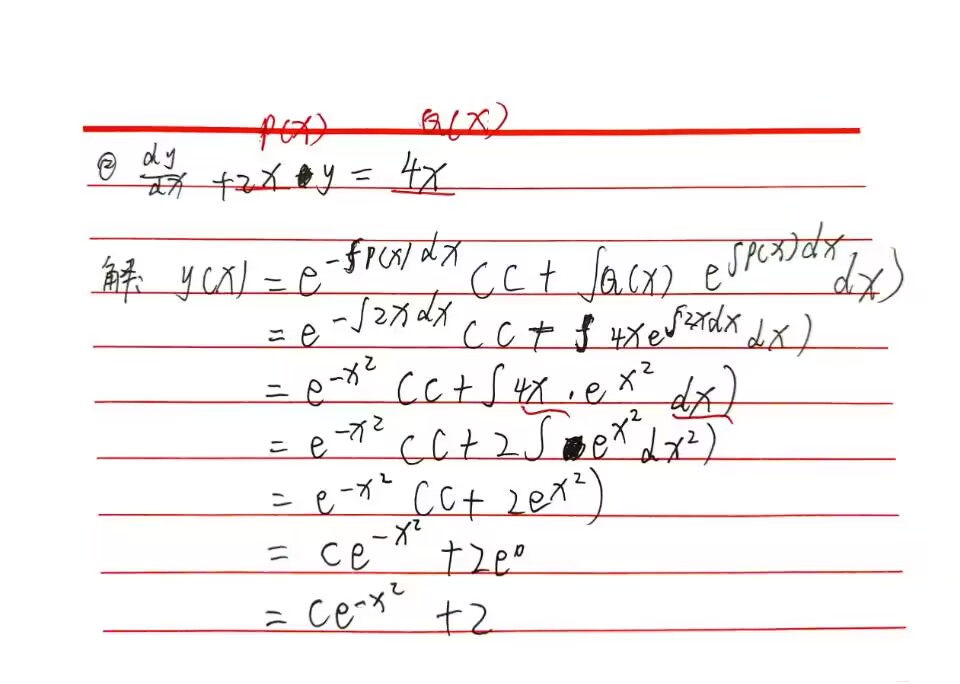 P(x) Q(x)
② dy/dx + 2x · y = 4x
解: y(x) = e^{-∫P(x)dx} (C + ∫Q(x) e^{∫P(x)dx} dx)
= e^{-∫2xdx} (C + ∫ 4xe^{∫2xdx} dx)
= e^{-x²} (C + ∫4x · e^{x²} dx)
= e^{-x²} (C + 2∫ e^{x²} dx²)
= e^{-x²} (C + 2e^{x²})
= Ce^{-x²} + 2e⁰
= Ce^{-x²} + 2